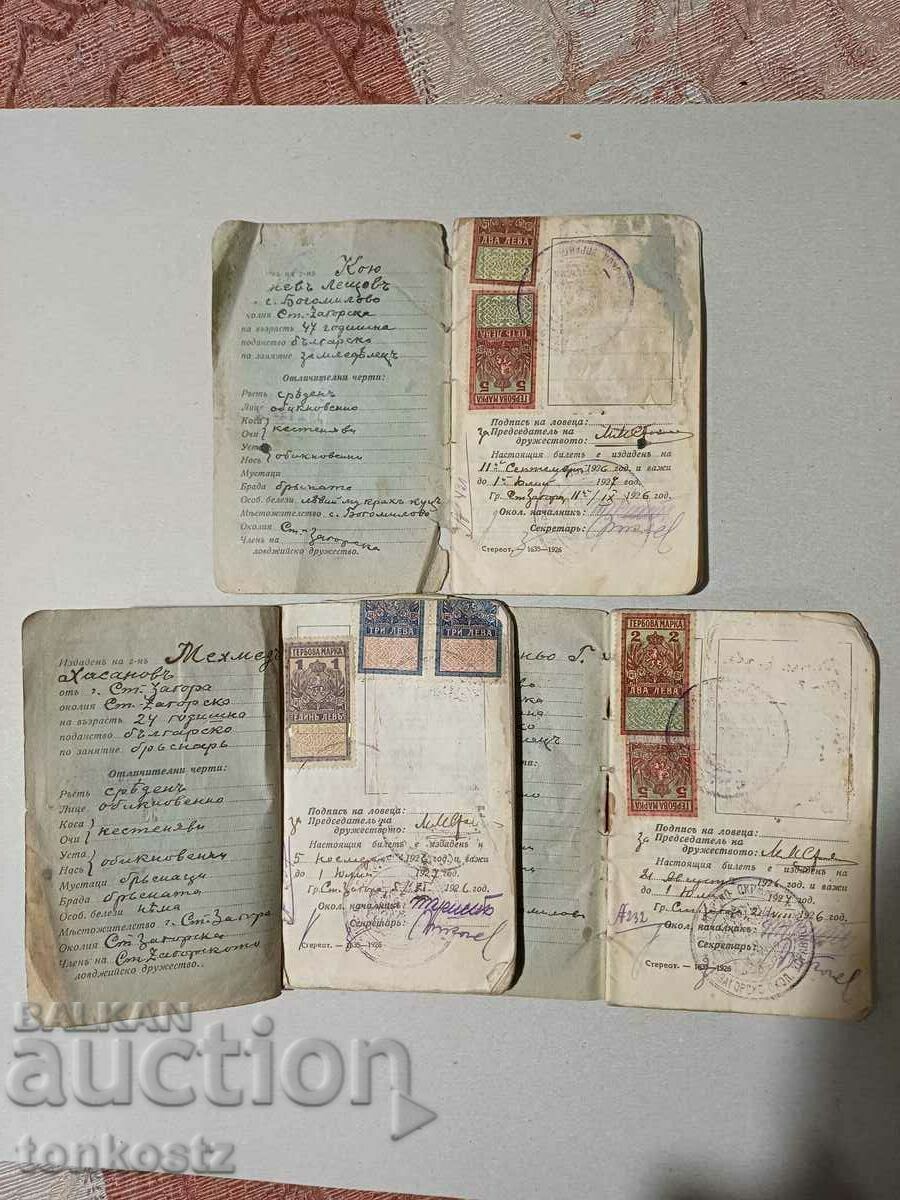 на г-нъ Кою
невъ Лещовъ
с. Богомилово
околия Ст.-Загорска
на възрасть 47 годишна
поданство българско
по занятие земледѣлецъ
Отличителни черти:
Ръстъ срѣденъ
Лице обикновенно
Коса
Очи } кестеняви
Уста
Носъ } обикновени
Мустаци
Брада бръсната
Особ. белези лѣвий му кракъ куцъ
Мѣстожителство с. Богомилово
Околия Ст.-Загорска
Членъ на
ловджийско дружество.
ДВА ЛЕВА
ПЕТЬ ЛЕВА
5 5
ГЕРБОВА МАРКА
Подпись на ловеца:
За Председатель на
дружеството:
Настоящия билетъ е издаденъ на
11й Септемврий 1926 год. и важи
до 1й Юлий 1927 год.
Гр. Ст. Загора 11й/IX 1926 год.
Окол. началникъ:
Секретарь:
Стереот. — 1635—1926
Издаденъ на г-нъ Мехмедъ
Хасановъ
отъ г. Ст. Загора
околия Ст. Загорско
на възрасть 24 годишна
поданство българско
по занятие бръснарь
Отличителни черти:
Ръстъ срѣденъ
Лице обикновенно
Коса
Очи } кестеняви
Уста
Носъ } обикновенни
Мустаци бръснаци
Брада бръсната
Особ. белези нѣма
Мѣстожителство г. Ст. Загора
Околия Ст. Загорска
Членъ на Ст. Загорското
ловджийско дружество.
ГЕРБОВА МАРКА
1 1
ЕДИНЬ ЛЕВЪ
ТРИ ЛЕВА
ТРИ ЛЕВА
Подпись на ловеца:
За Председатель на
дружеството:
Настоящия билетъ е издаденъ н
5 1926 год. и важи
до 1 Юлий 1927 год.
Гр. Ст. Загора 5/XI 1926 год.
Окол. началникъ:
Секретарь:
Стереот. — 1635—1926
ньо Г.
ГЕРБОВА МАРКА
2 2
ДВА ЛЕВА
5 5
ГЕРБОВА МАРКА
Подпись на ловеца:
За Председатель на
дружеството:
Настоящия билетъ е издаденъ на
21 Августъ 1926 год. и важи
до 1 Юлий 1927 год.
1926 год.
Окол. началникъ:
Секретарь:
Стереот. — 1635—1926
№232
BALKAN
auction
tonkostz